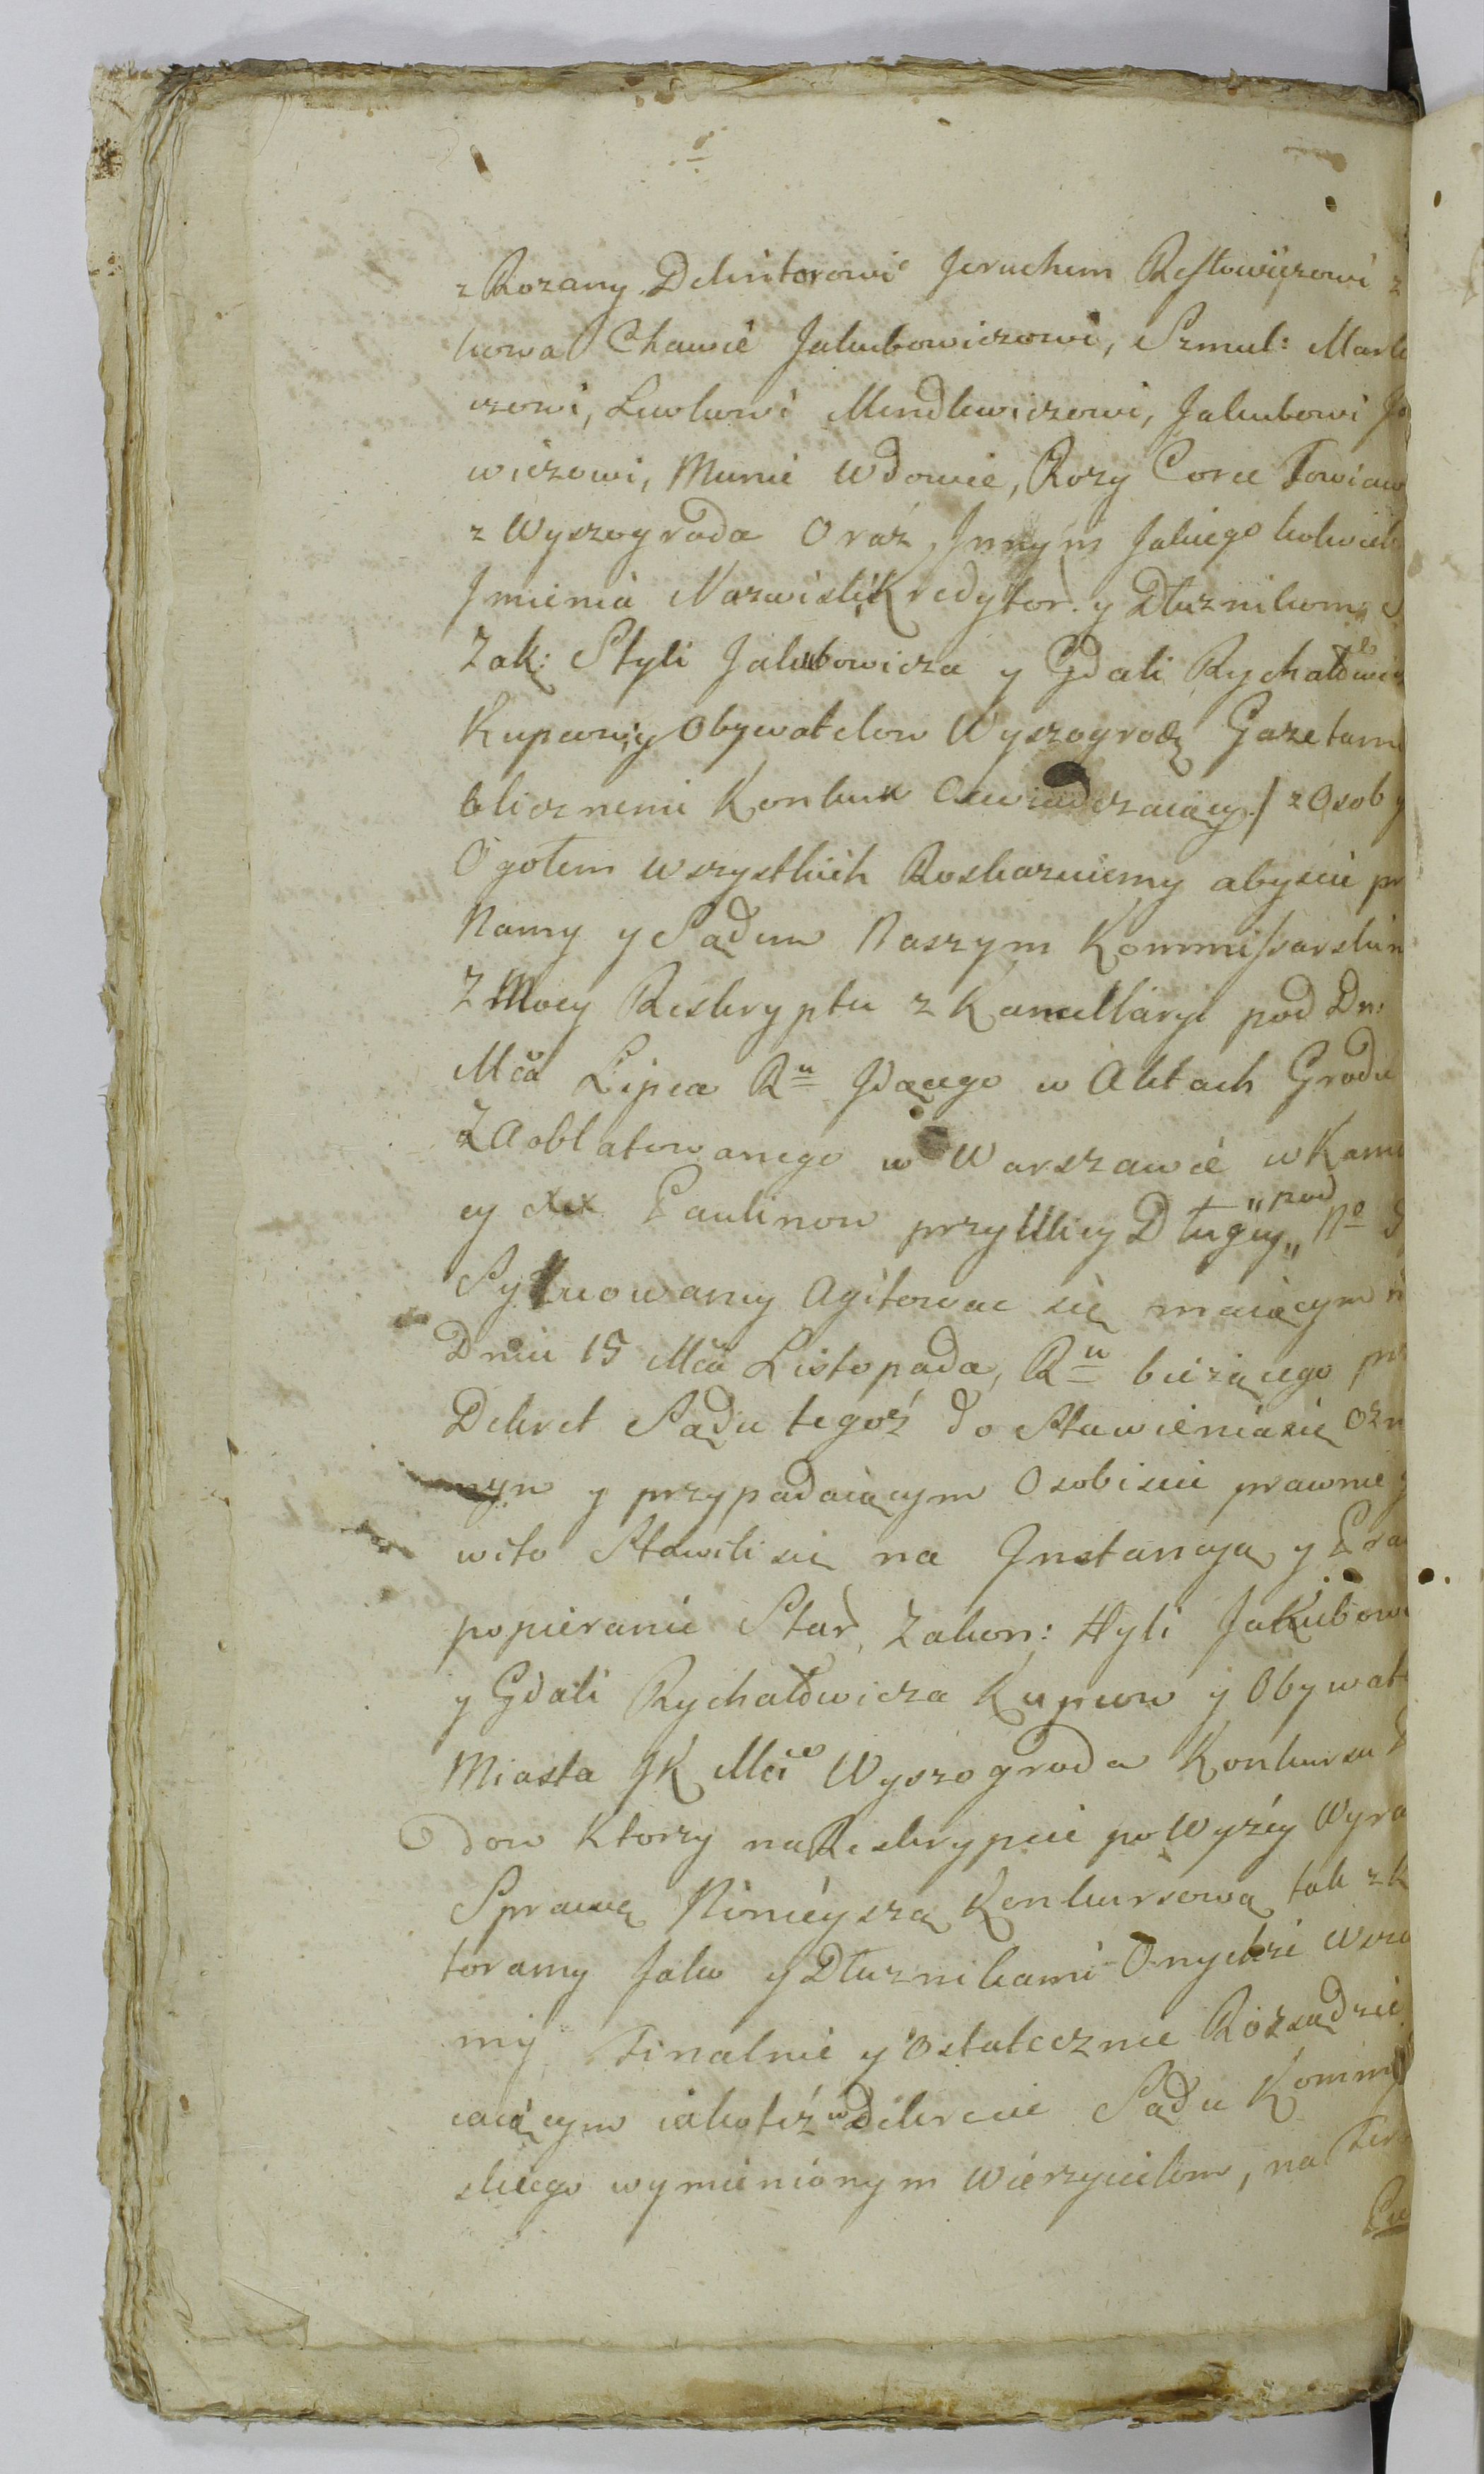 z Rozany Debitorowi Jeruchem Restowiczowi z
kowa Chawie Jakubowiczowi, Szmul: Mark
czowi, Lewkowi Mendlewiczowi, Jakubowi Jo
wiczowi, Munie Wdowie, Rozy Corce Towiaw
z Wyszogroda Oraz Innym Jakiego kolwiek
Jmienia Nazwisk Kredytor. y Dłuznikom
Zak: Styli Jakubowicza y Gdali Rychałowic
Kupcow y Obywatelow Wyszogrodz Gazetami
blicznemi Konkurs Oswiadczaiący / z Osob y
Ogołem wszystkich Roskazuiemy abyscie pr
Namy y Sądem Naszym Kommissarskim
Z Mocy Reskryptu z Kancellaryi pod Dn:
Mca Lipca Ru Idącego w Aktach Grodu
Zaoblatowanego w Warszawie w Kami
cy Xx Paulinow przy Ulicy Długiey „pod„ No
Sytuowaney Agitowac się maiącym n
Dniu 15 Mca Listopada, Ru biezącego prz
Dekret Sądu tegoż do Stawienia się Ozn
nym y przypadaiącym Osobiscie prawnie y
wito Stawili się na Instancyą y Pra
popieranie Star, Zakon: Hyli Jakubowi
y Gdali Rychałowicza Kupcow y Obywat
Miasta JK Mci Wyszogroda Konkursu
dow Ktorzy na Reskrypcie powyzey Wyra
Sprawę Ninieyszą Konkursową tak z K
toramy Jako y Dłuznikami Onychże Wsz
my Finalnie y Ostatecznie Rozsądzie
iaiącym iakoteż w Dekrecie Sądu Kommis
skiego wymienionym Wierzycielom, na Ter